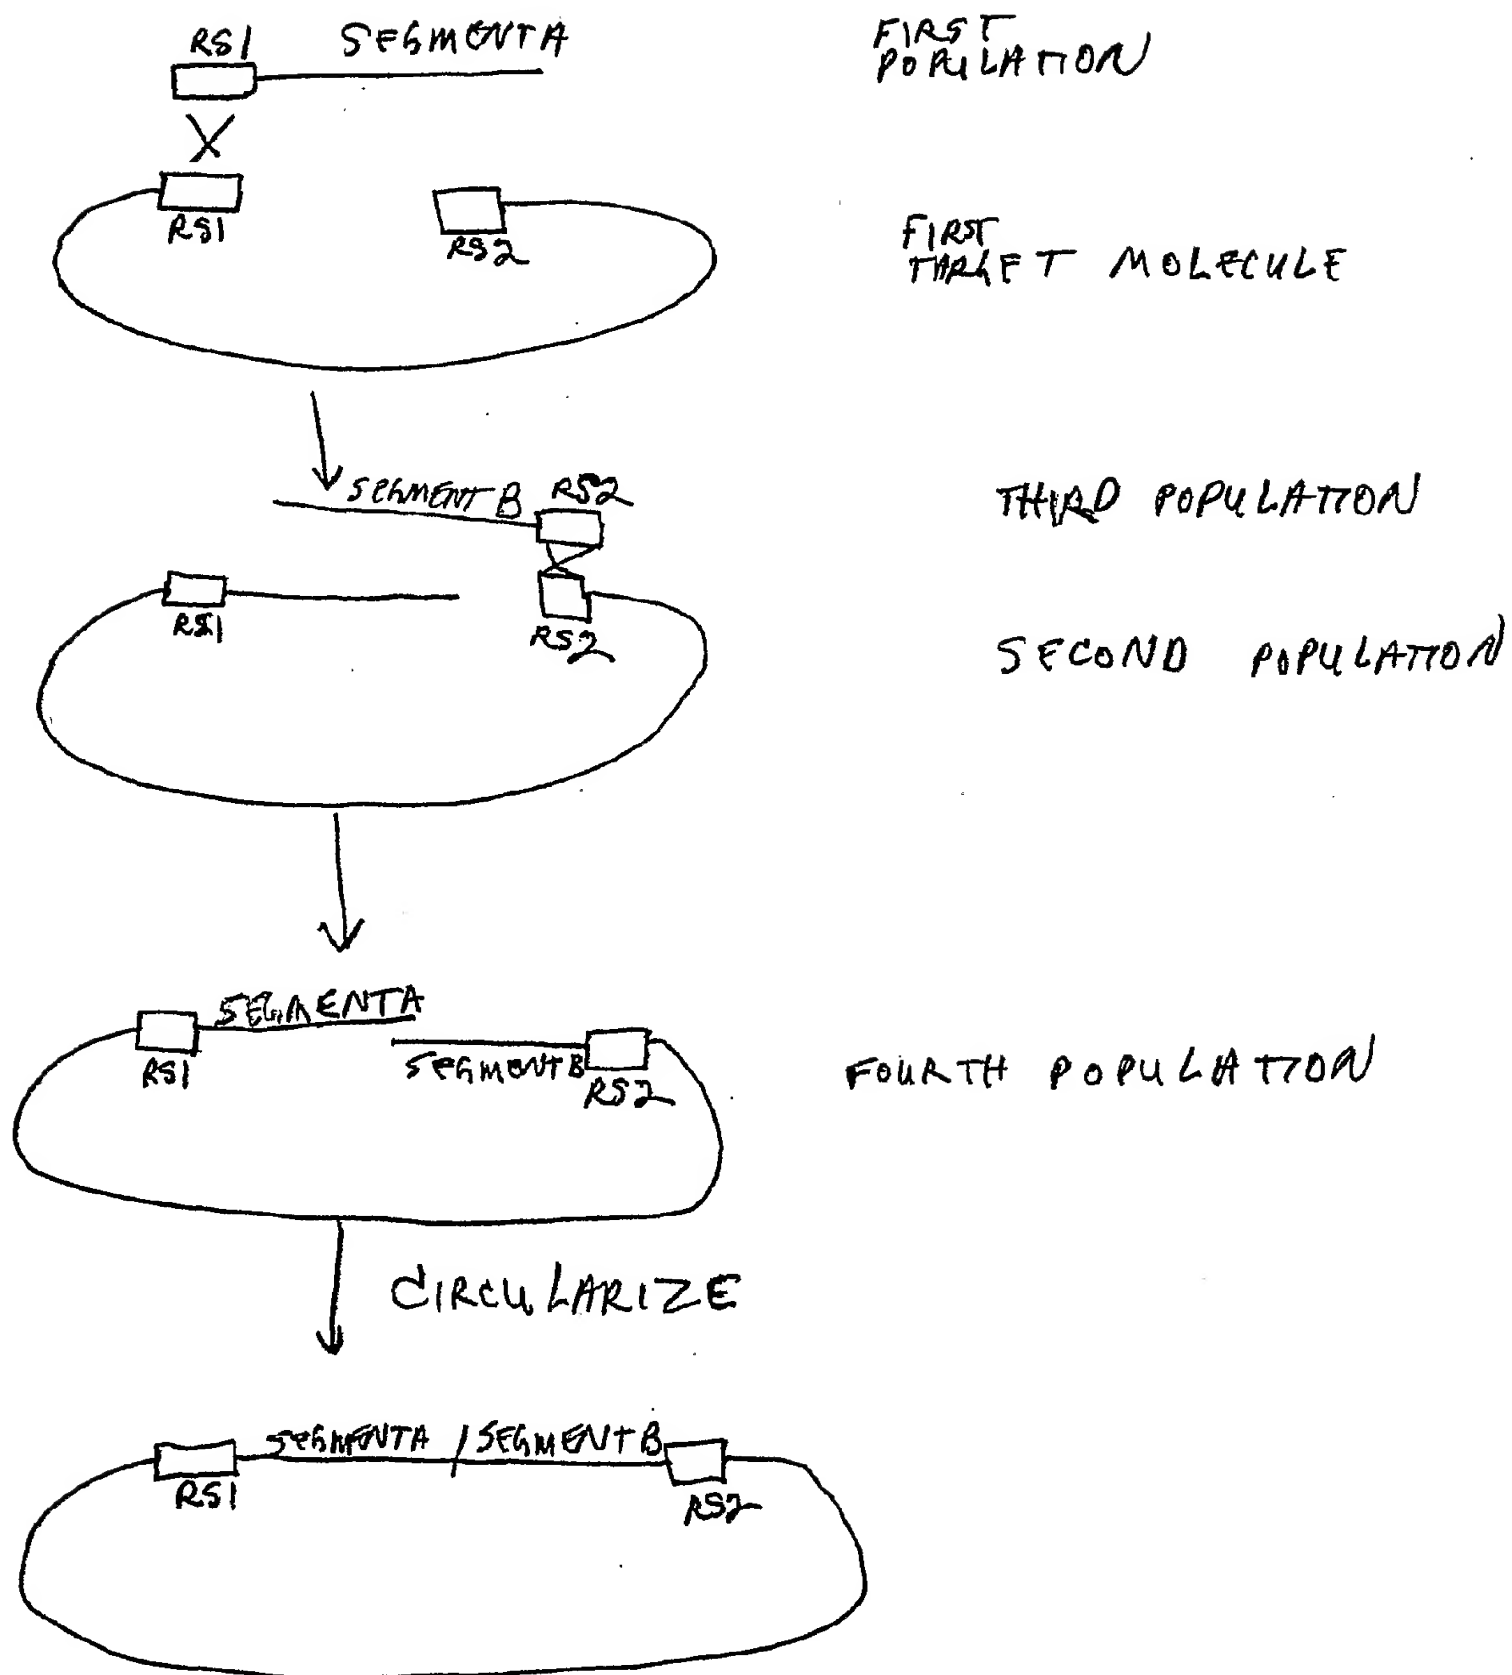 RS1 SEGMENTA
FIRST
POPULATION
RS1
RS2
FIRST
TARGET MOLECULE
SEGMENT B RS2
THIRD POPULATION
RS1
RS2
SECOND POPULATION
SEGMENTA
RS1
SEGMENTB
RS2
FOURTH POPULATION
CIRCULARIZE
SEGMENTA / SEGMENTB
RS1
RS2